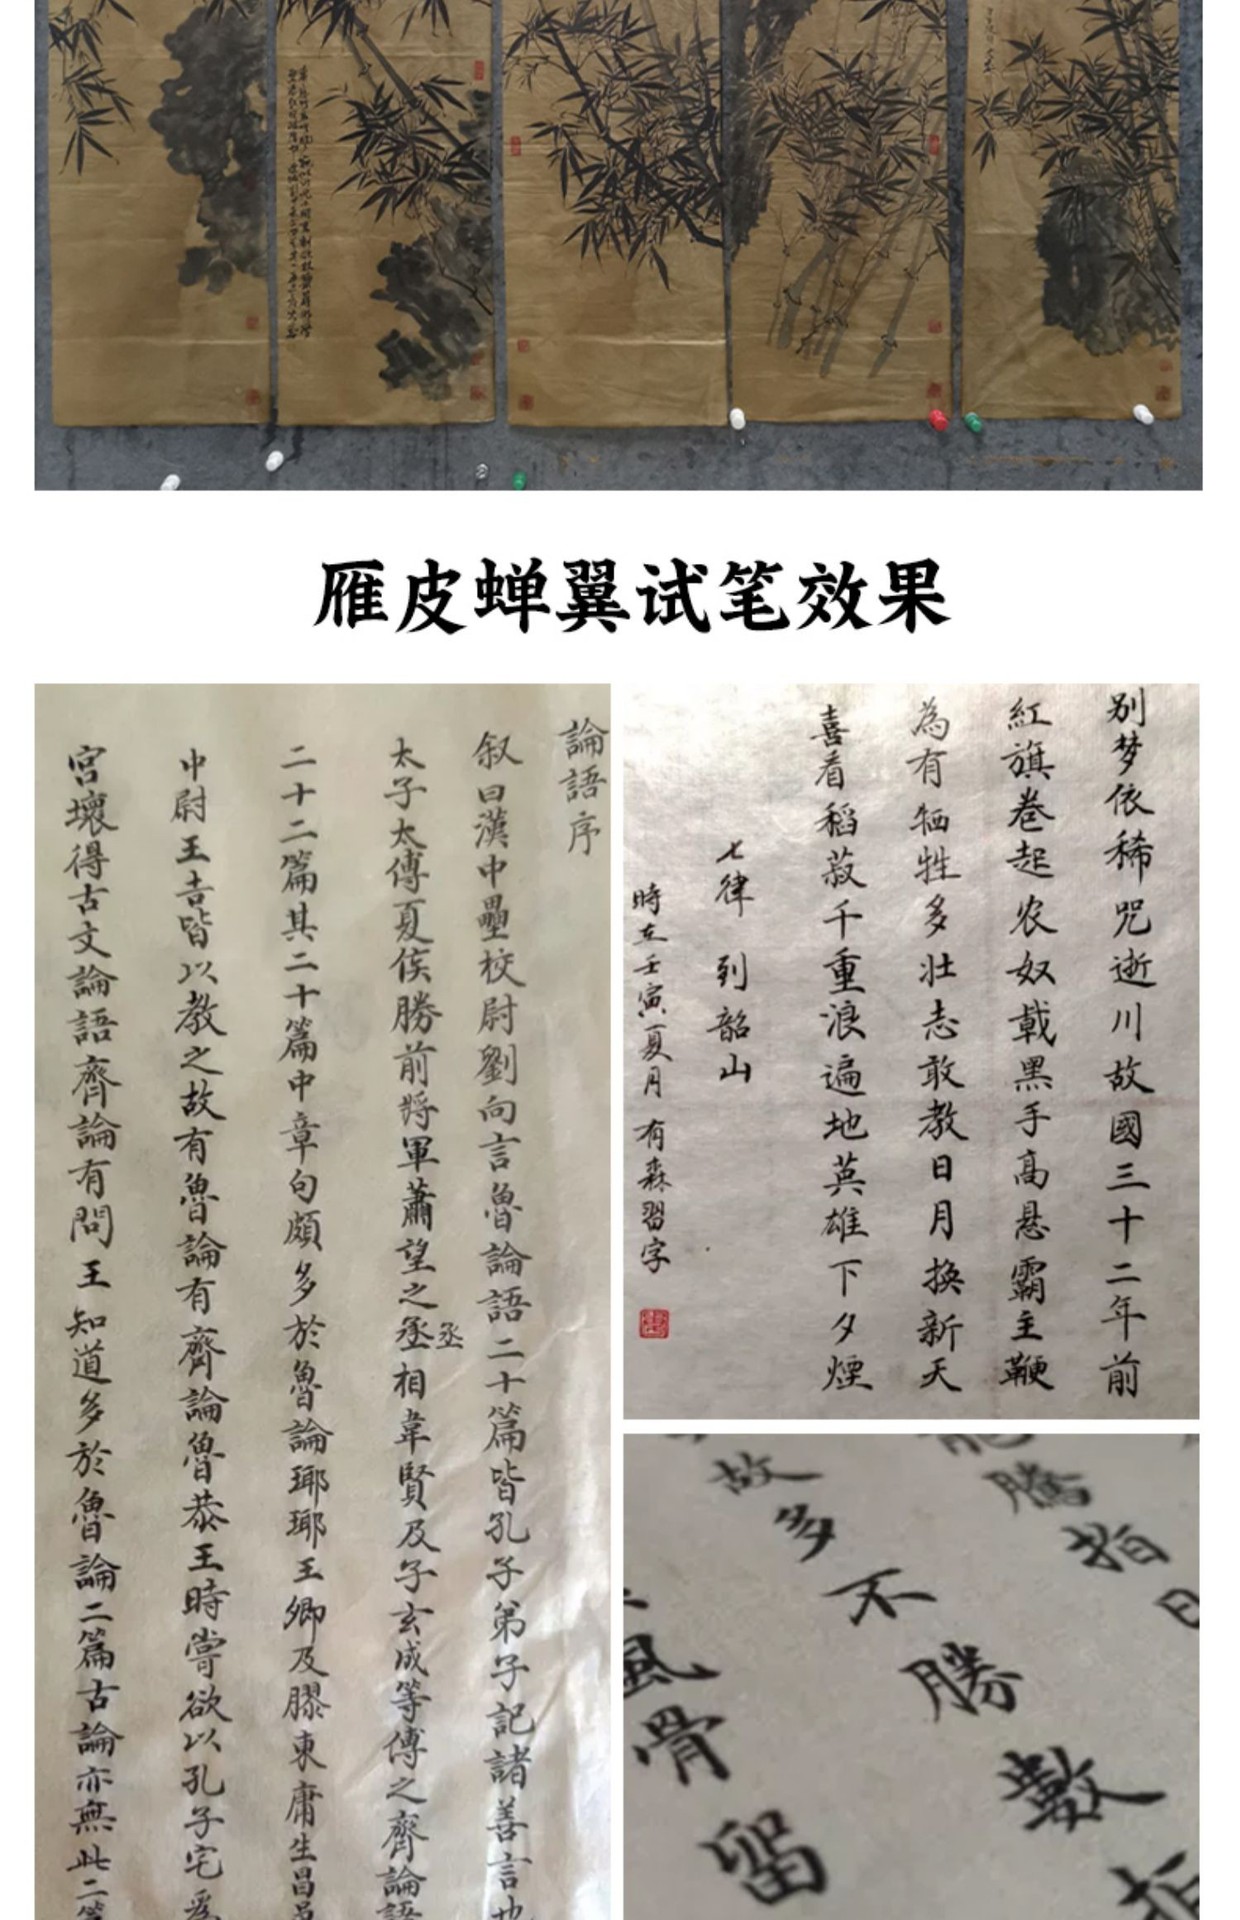 雁皮蝉翼试笔效果
論語序
叙曰漢中壘校尉劉向言魯論語二十篇皆孔子弟子記諸善言也
太子太傅夏侯勝前將軍蕭望之丞丞相韋賢及子玄成等傳之齊論語
二十二篇其二十篇中章句頗多於魯論瑯瑘王卿及膠東庸生昌邑
中尉王吉皆以教之故有魯論有齊論魯恭王時嘗欲以孔子宅為
宮壞得古文論語齊論有問王知道多於魯論二篇古論亦無此二篇
别梦依稀咒逝川故國三十二年前
紅旗卷起农奴戟黑手高悬霸主鞭
為有牺牲多壮志敢教日月换新天
喜看稻菽千重浪遍地英雄下夕煙
七律 到韶山
時在壬寅夏月 有森習字
騰拍日
故多不勝數拍
風骨留